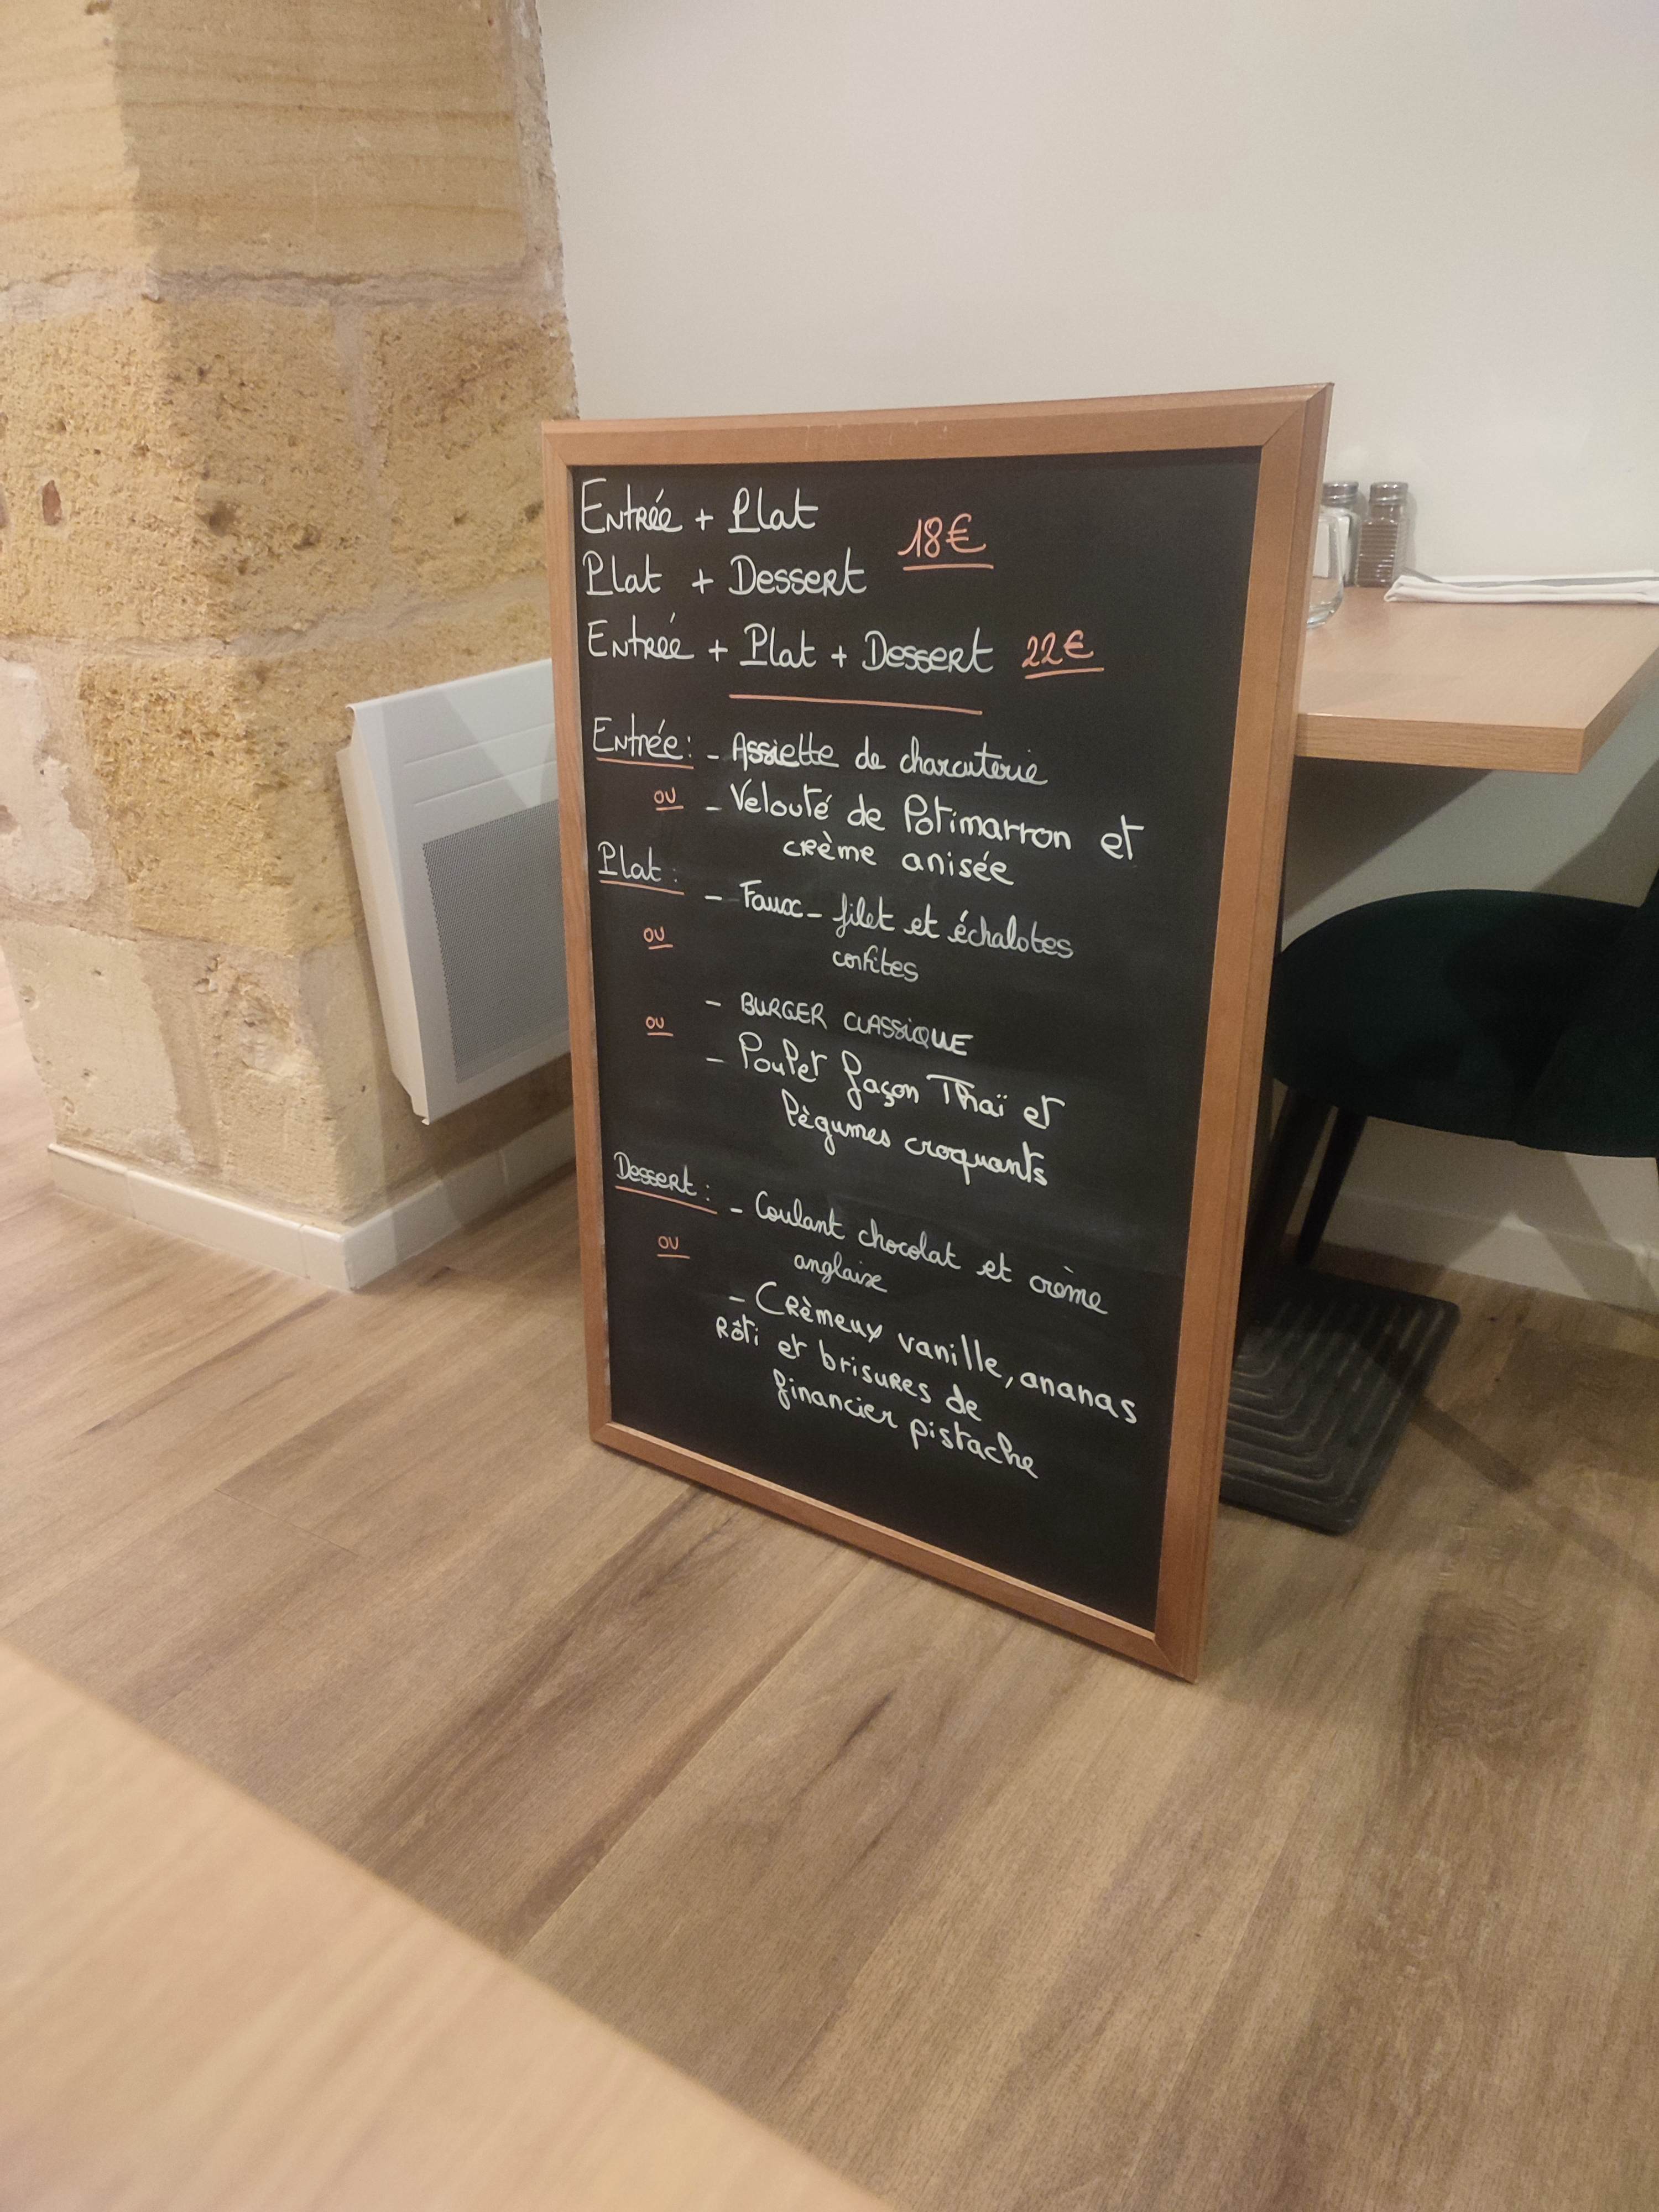 Entrée + Plat
18€
Plat + Dessert
Entrée + Plat + Dessert 22€
Entrée: - Assiette de charcuterie
ou - Velouté de Potimarron et
crème anisée
Plat:
- Faux-filet et échalotes
ou
confites
- BURGER CLASSiQUE
ou
- Poulet façon Thaï et
légumes croquants
Dessert: - Coulant chocolat et crème
ou
anglaise
- Crèmeux vanille, ananas
Rôti et brisures de
financier pistache